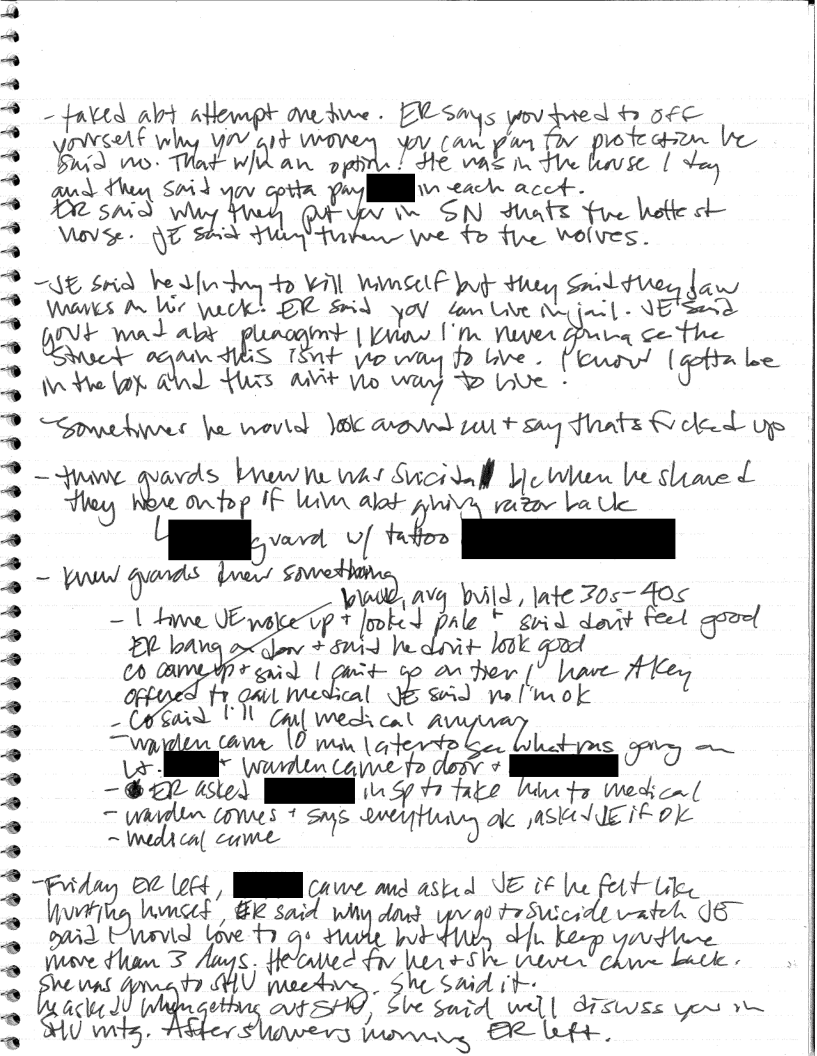 - talked abt attempt one time. ER says you tried to off
yourself why you got money you can pay for protection he
said no. That w/n an option. He was in the house 1 day
and they said you gotta pay in each acct.
ER said why they put you in SN thats the hottest
house. JE said they threw me to the wolves.
- JE said he d/n try to kill himself but they said they saw
marks on his neck. ER said you can live in jail. JE said
govt mad abt pleaagmt I know I'm never gonna se the
street again this isnt no way to live. I know I gotta be
in the box and this ain't no way to live.
- Sometimes he would look around cell + say thats fucked up
- think guards knew he was suicidal b/c when he shaved
they were on top of him abt giving razor back
guard w/ tattoo
- knew guards knew something
black, avg build, late 30s-40s
- 1 time JE woke up + looked pale + said don't feel good
ER bang on door + said he don't look good
co came up + said I can't go on tier / have A key
offered to call medical JE said no I'm ok
- Co said I'll call medical anyway
- warden came 10 min later to see what was going on
Lt. + warden came to door +
- ER asked in sp to take him to medical
- warden comes + says everything ok, asked JE if OK
- medical came
- Friday ER left, came and asked JE if he felt like
hurting himself, ER said why dont you go to suicide watch JE
said I would love to go there but they d/n keep you there
more than 3 days. He called for her + she never came back.
She was going to SHU meeting. She said it.
asked when getting out SHU, she said we'll discuss you in
SHU mtg. After showers morning ER left.